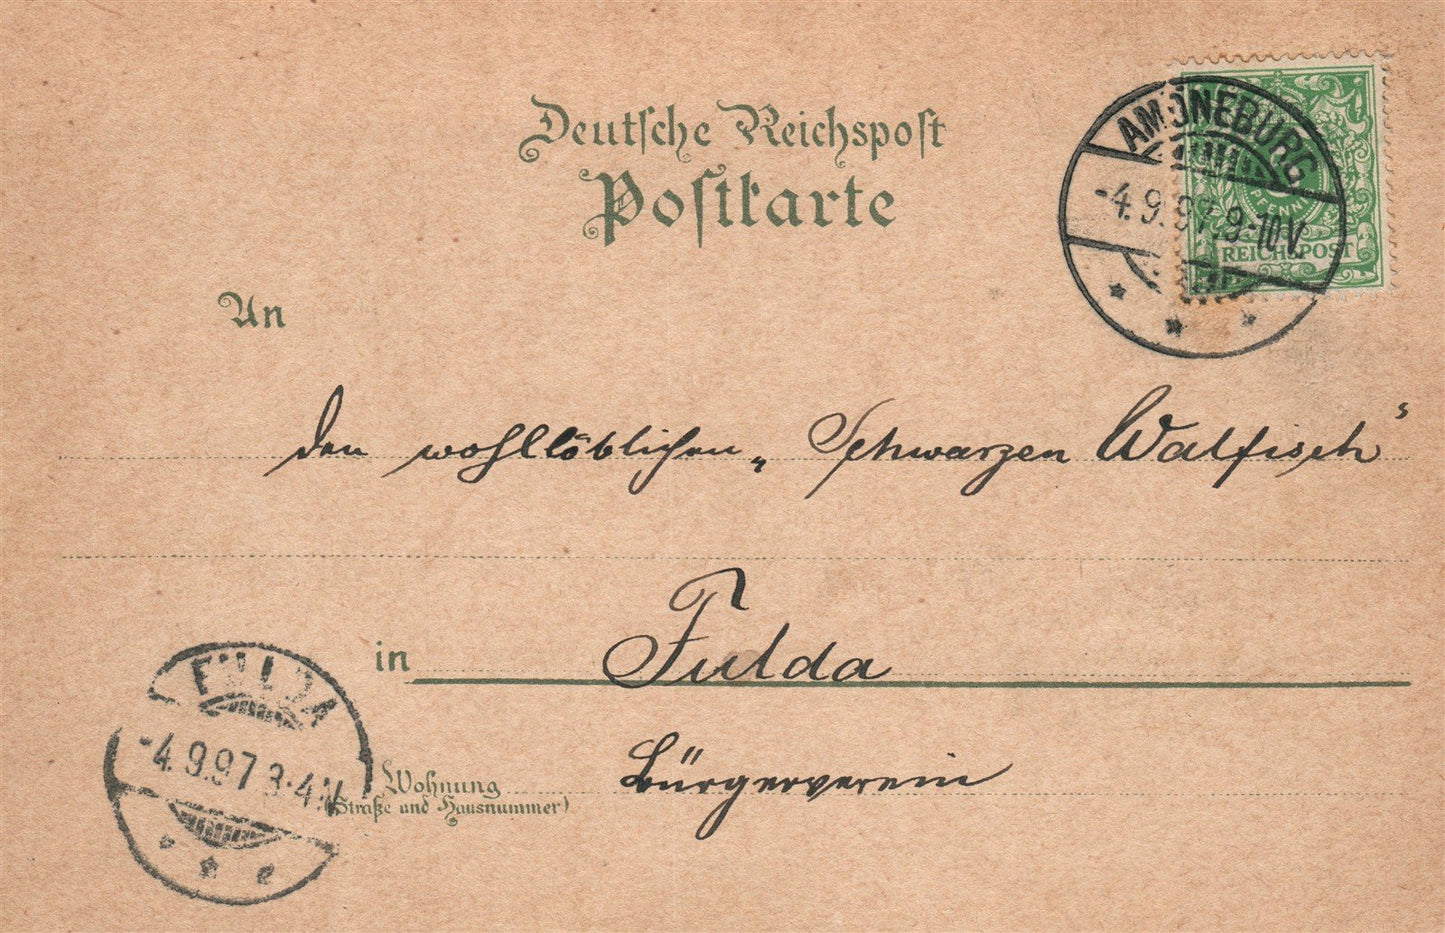 Deutsche Reichspost
Postkarte
AMÖNEBURG
-4.9.97.9-10V.
PFENNIG
REICHSPOST
An
den wohllöblichen „Schwarzen Walfisch"
in Fulda
FULDA
-4.9.97 3-4N
Wohnung Bürgerverein
(Straße und Hausnummer)